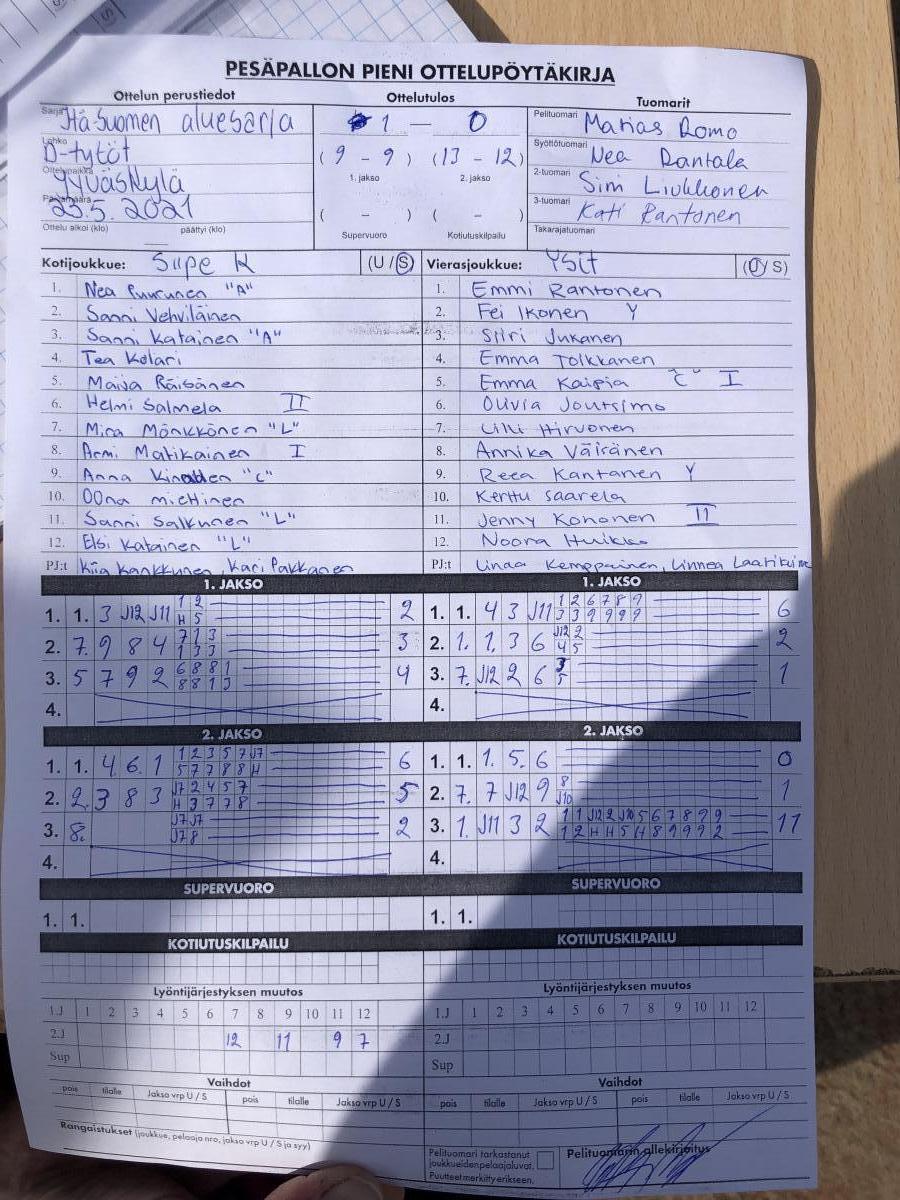 PESÄPALLON PIENI OTTELUPÖYTÄKIRJA
Ottelun perustiedot
Ottelutulos
Tuomarit
Sarja Itä-Suomen aluesarja
Lohko D-tytöt
Ottelupaikka Jyväskylä
Päivämäärä 23.5.2021
Ottelu alkoi (klo) päättyi (klo)
1 — 0
(9 - 9) (13 - 12)
1. jakso 2. jakso
( - ) ( - )
Supervuoro Kotiutuskilpailu
Pelituomari Matias Romo
Syöttötuomari Nea Rantala
2-tuomari Sini Liukkonen
3-tuomari Kati Rantonen
Takarajatuomari
Kotijoukkue: Siipe K (U / S)
1. Nea Puurunen "A"
2. Sanni Vehviläinen
3. Sanni Katainen "A"
4. Tea Kolari
5. Maija Räisänen
6. Helmi Salmela II
7. Mira Mönkkönen "L"
8. Armi Matikainen I
9. Anna "C"
10. Oona Miettinen
11. Sanni Salkunen "L"
12. Elsi Katainen "L"
PJ:t Kiia Kankkunen, Kari Pakkanen
Vierasjoukkue: Ysit (U / S)
1. Emmi Rantonen
2. Fei Ikonen Y
3. Siiri Jukanen
4. Emma Tolkkanen
5. Emma Kaipia "C" I
6. Olivia Joutsimo
7. Lilli Hirvonen
8. Annika Väisänen
9. Reea Kantanen Y
10. Kerttu Saarela
11. Jenny Kononen II
12. Noora Huikko
PJ:t Kemppainen, Linnea
1. JAKSO
1. 1. 3 J12 J11 1 2 2
H 5
2. 7. 9 8 4 7 1 3 3
1 3 3
3. 5 7 9 2 6 8 8 1 4
8 8 1 3
4.
1. JAKSO
1. 1. 4 3 J11 1 2 6 7 8 9 6
3 3 9 9 9 9
2. 1. 1. 3 6 J12 2 2
4 5
3. 7. J12 2 6 3 1
5
4.
2. JAKSO
1. 1. 4. 6. 1 1 2 3 5 7 J7 6
5 7 7 8 8 H
2. 2. 3 8 3 J7 2 4 5 7 5
H 3 7 7 8
3. 8. J7 J7 2
J7 8
4.
2. JAKSO
1. 1. 1. 5. 6 0
2. 7. 7 J12 9 8 1
J10
3. 1. J11 3 2 1 1 J12 2 J10 5 6 7 8 9 9 11
1 2 H H 5 H 8 9 9 9 2
4.
SUPERVUORO
1. 1.
SUPERVUORO
1. 1.
KOTIUTUSKILPAILU
KOTIUTUSKILPAILU
Lyöntijärjestyksen muutos
1.J 1 2 3 4 5 6 7 8 9 10 11 12
2.J 12 11 9 7
Sup
Lyöntijärjestyksen muutos
1.J 1 2 3 4 5 6 7 8 9 10 11 12
2.J
Sup
Vaihdot
pois tilalle Jakso vrp U / S pois tilalle Jakso vrp U / S
Vaihdot
pois tilalle Jakso vrp U / S pois tilalle Jakso vrp U / S
Rangaistukset (joukkue, pelaaja nro, jakso vrp U / S ja syy)
Pelituomari tarkastanut
joukkueiden pelaajaluvat.
Puutteet merkitty erikseen.
Pelituomarin allekirjoitus